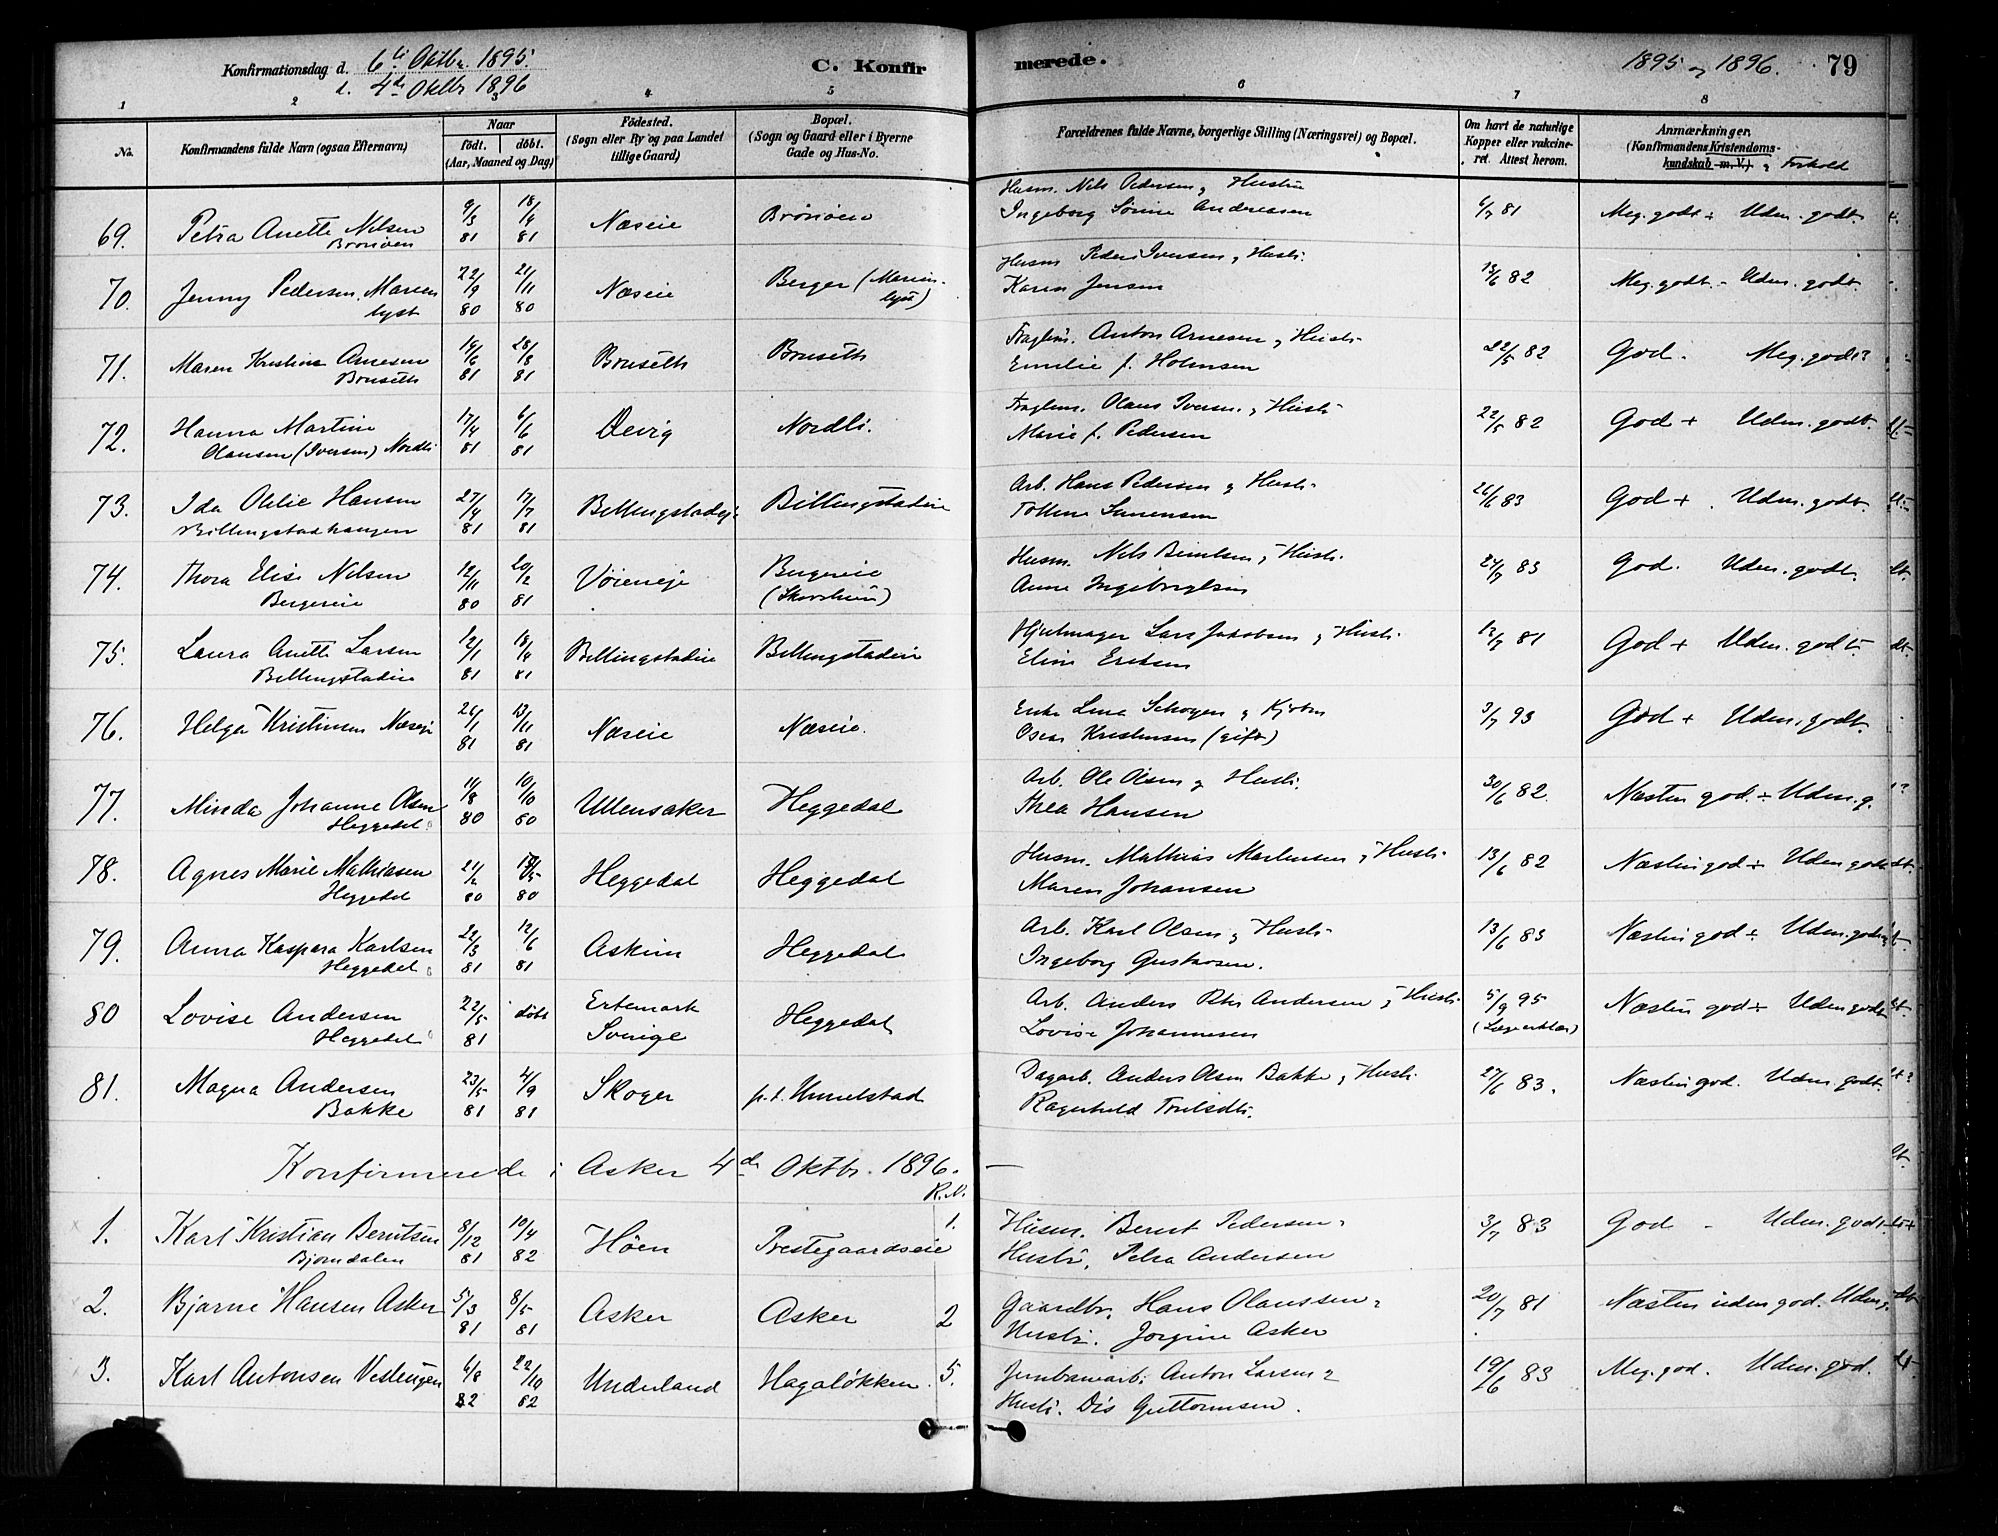 Konfirmationsdag d. 6te Oktbr. 1895.
d. 4de Oktbr 1896
C. Konfir
merede.
1895 og 1896. 79
1 2 3 4 5 6 7 8
No.
Konfirmandens fulde Navn (ogsaa Efternavn)
Naar
födt. döbt.
(Aar, Maaned og Dag)
Födested.
(Sogn eller By og paa Landet
tillige Gaard)
Bopæl.
(Sogn og Gaard eller i Byerne
Gade og Hus-No.
Forældrenes fulde Navne, borgerlige Stilling (Næringsvei) og Bopæl.
Om havt de naturlige
Kopper eller vakcine-
ret. Attest herom.
Anmærkninger.
(Konfirmandens Kristendoms-
kundskab m. V.) og Forhold
69. Petra Anette Nilsen 9/3 81 18/4 81 Næseie Brönöen
Brönöen
Husm. Nils Pedersen og Hustru
Ingeborg Sörine Andreassen
6/7 81 Meg. godt + Udm. godt.
70. Jenny Pedersen, Marien 22/9 80 21/11 80 Næseie Berger (Marien-
lyst lyst)
Husm Peder Iversen og Hustr.
Karen Jensen
13/6 82 Meg. godt. - Udm. godt.
71. Maren Kristine Arnesen 19/6 81 28/8 81 Bruseth Bruseth
Bruseth
Anton Arnesen og Hustr.
Emilie f. Holmsen
22/5 82 God. Meg. godt?
72. Hanna Martine 17/4 81 6/6 81 Nordli.
Olausen (Iversen) Nordli
Olaus Iversen og Hustr.
Marie f. Pedersen
22/5 82 God + Udm. godt.
73. Ida Otilie Hansen 27/4 81 17/7 81 Billingstadeje Billingstadeie
Billingstadhaugen
Arb. Hans Pedersen og Hustr.
26/6 83 God + Udm. godt
74. Thora Elise Nilsen 12/11 80 20/2 81 Vöieneje Bergereie
Bergereie
Husm. Nils og Hustr.
Anne
24/7 83 God. Udm. godt.
75. Laura Anette Larsen 12/1 81 18/4 81 Billingstadeie Billingstadeie
Billingstadeie
Hjulmager Lars Jakobsen og Hustr.
Eline
13/7 81 God + Udm. godt.
76. Helga Kristensen Næseje 26/1 81 13/11 81 Næseie Næseie.
Enke Lina og
Oscar Kristensen (gift)
3/7 93 God + Udm. godt.
77. Minda Johanne Olsen 11/8 80 10/10 80 Ullensaker Heggedal
Heggedal
Arb. Ole Olsen og Hustr.
Thea Hansen
30/6 82. Næsten god. ÷ Udm. g.
78. Agnes Marie Mathiasen 21/2 80 80 Heggedal Heggedal
Heggedal
Husm. Mathias Martinsen og Hustr.
Maren Johansen
13/6 82 Næsten god ÷ Udm. godt
79. Anna Kaspara Karlsen 22/3 81 12/6 81 Askim Heggedal
Heggedal
Arb. Karl Olsen og Hustr.
Ingeborg Gustavsen.
13/6 83 Næsten god ÷ Udm. godt
80 Lovise Andersen 22/5 81 döbt Ertemark Heggedal
Heggedal Sverige
Arb. Anders Peter Andersen og Hustr.
Lovise Johannesen
5/9 95 Næsten god ÷ Udm godt
(Lægeerklær)
81. Magna Andersen 23/5 81 4/9 81 Skoger p. t. Hunelstad
Bakke
Dagarb. Anders Olsen Bakke og Hustr.
Ragnhild Trulsdtr.
27/6 83. Næsten god. Udm. godt.
Konfirmerede i Asker 4de Oktbr. 1896. —
R. N.
1. Karl Kristian Berntsen 8/12 81 10/4 82 Höen Prestegaardseie 1.
Bjorndalen
Husm. Bernt Pedersen og
Hustr. Petra Andersen
3/7 83 God - Udm. godt
2. Bjarne Hansen Asker 5/3 81 8/5 81 Asker Asker 2
Gaardbr. Hans Olaussen og
Hustr. Jorgine Asker
20/7 81 Næsten uden god. Udm. g.
3. Karl Antonsen Vestengen 6/8 82 22/10 82 Underland Hagaløkken 5.
Jernbanearb. Anton Larsen og
Hustr. Dis Guttormsen.
19/6 83 Meg. god. Udm. god.